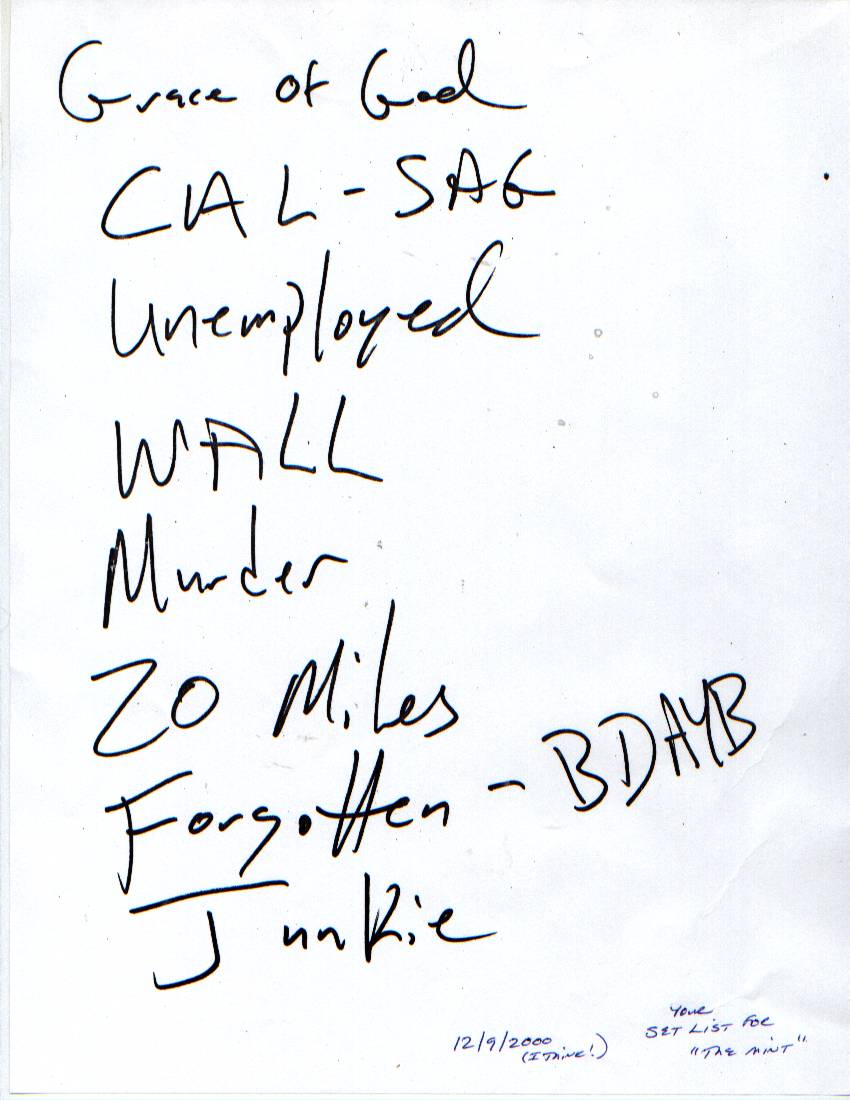 Grace of God
CAL-SAG
Unemployed
WALL
Murder
20 Miles
Forgotten - BDAYB
Junkie
12/9/2000
(I Think!)
YOUR
SET LIST FOR
"THE MINT"